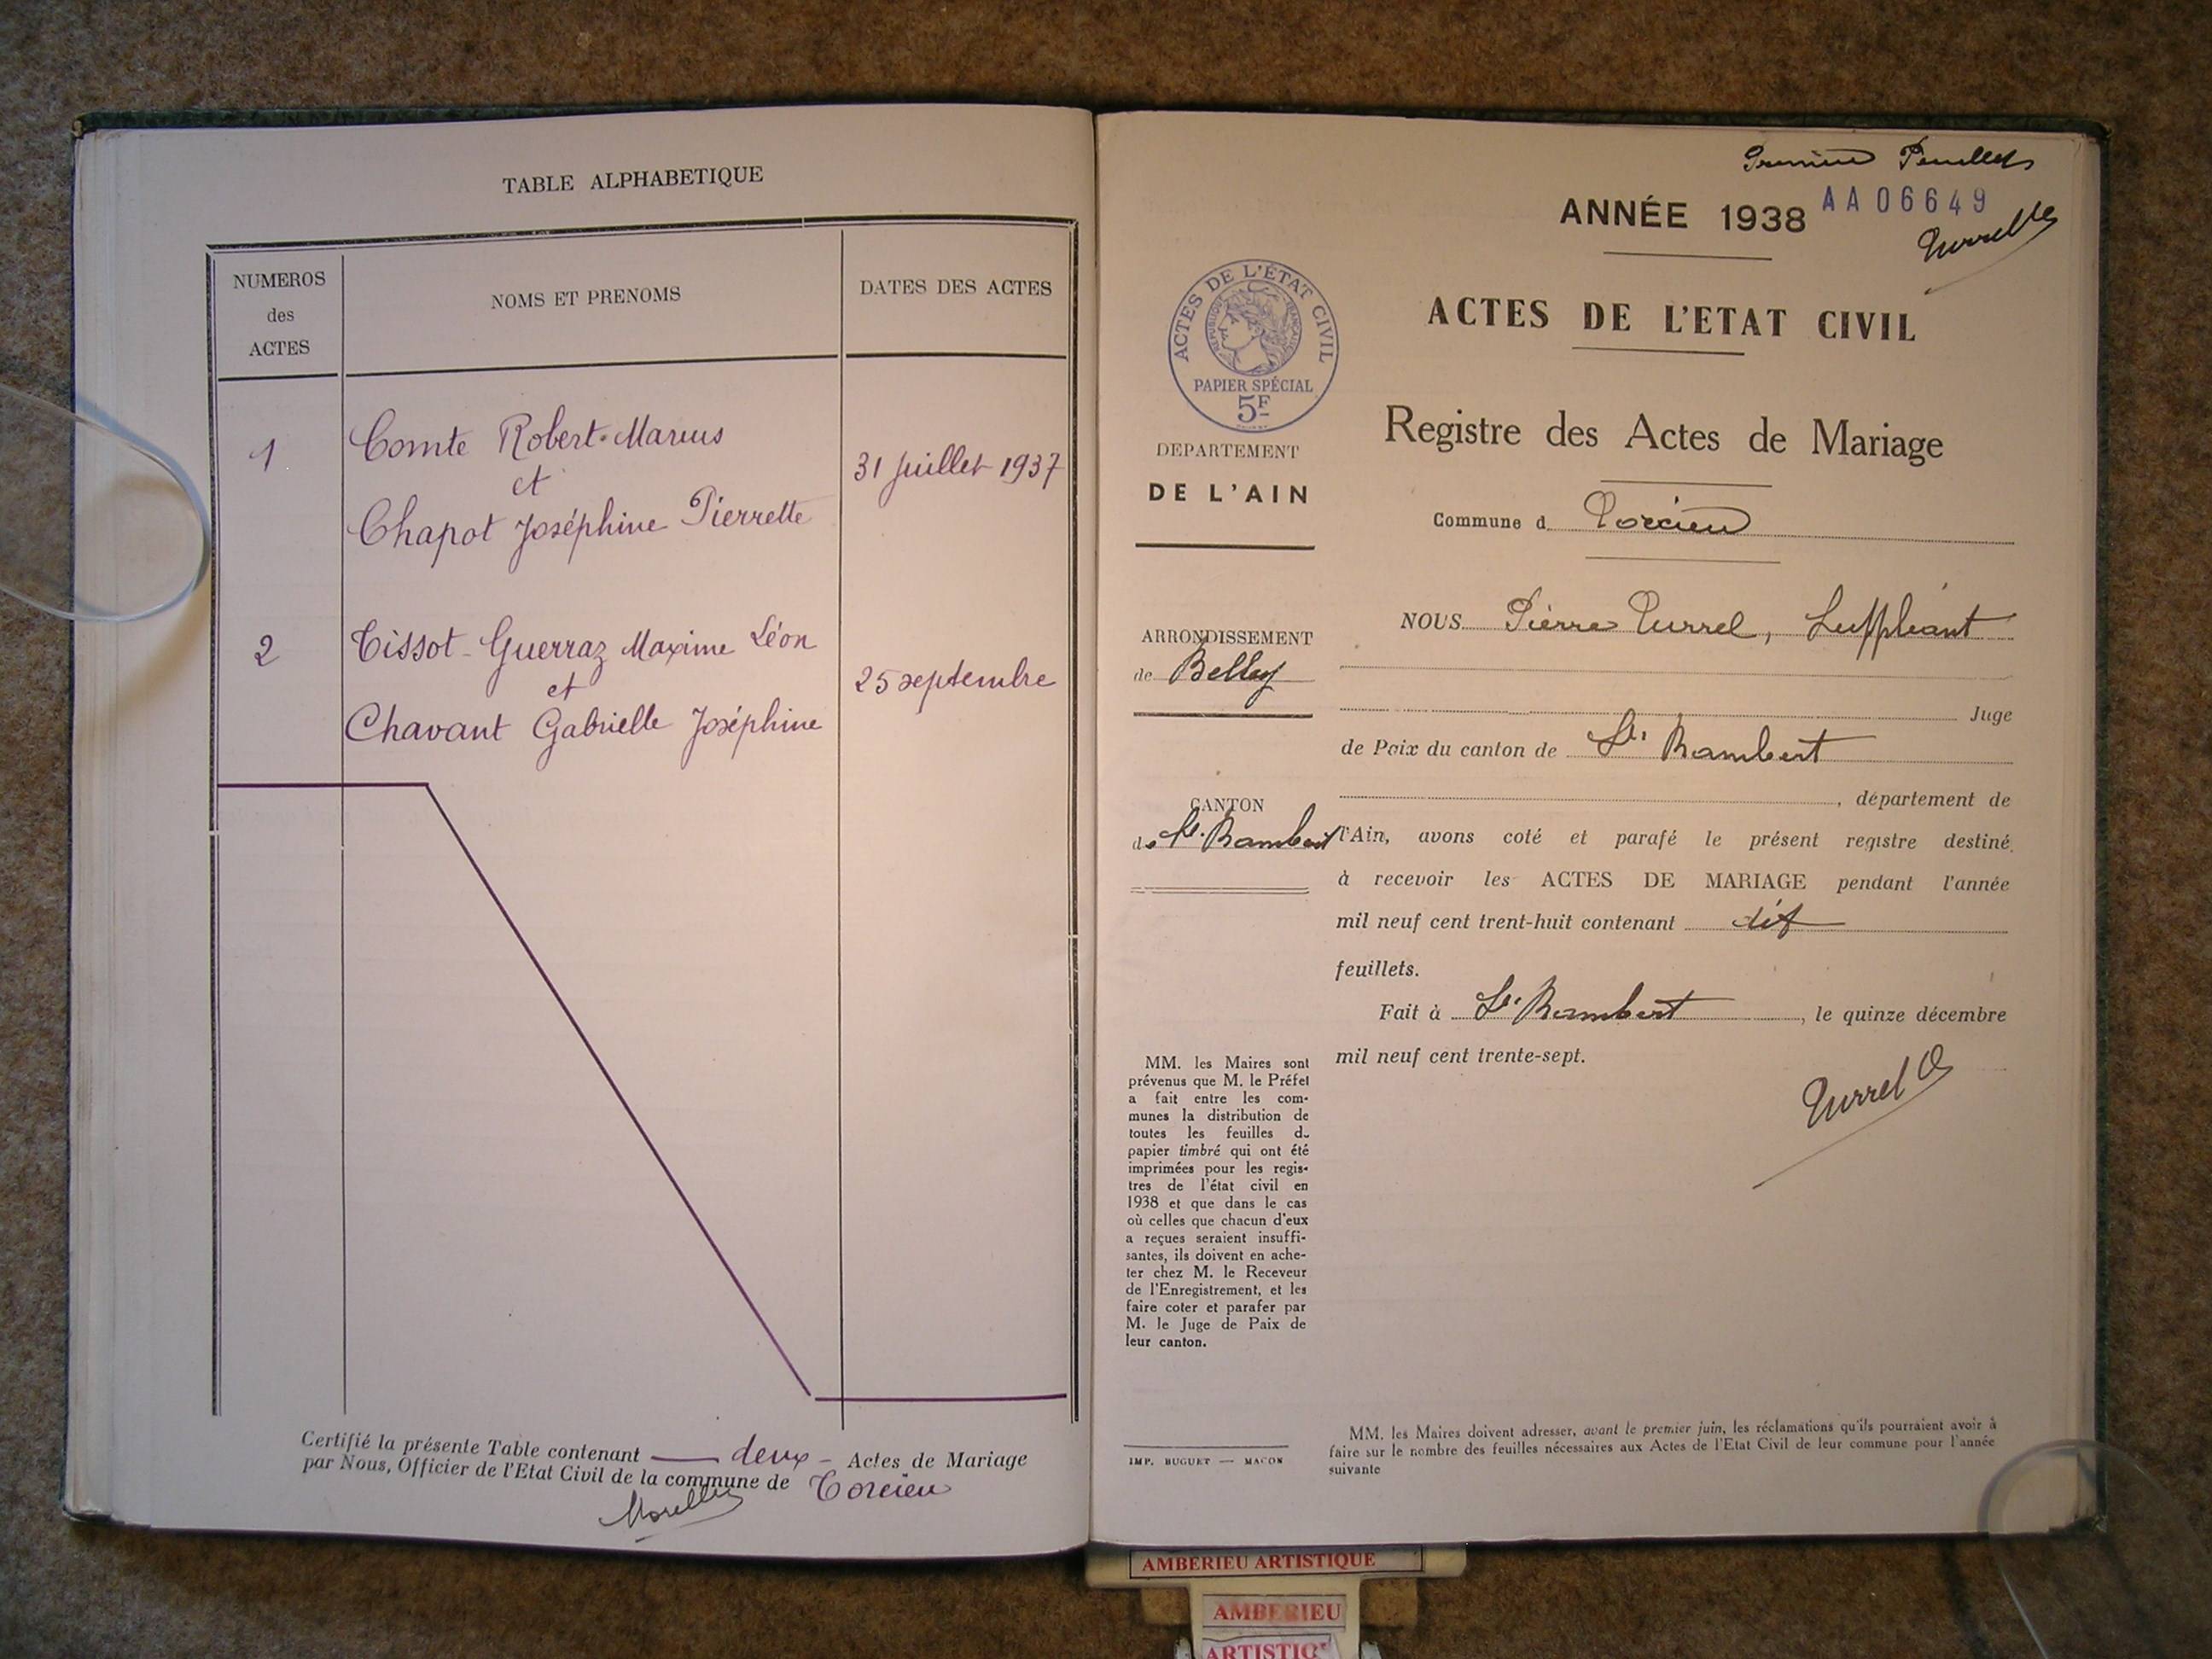 TABLE ALPHABETIQUE
NUMEROS
des
ACTES
NOMS ET PRENOMS
DATES DES ACTES
1
Comte Robert-Marius
et
Chapot Joséphine Pierrette
31 juillet 1937
2
Tissot-Guerraz Maxime Léon
et
Chavant Gabrielle Joséphine
25 septembre
Certifié la présente Table contenant deux Actes de Mariage
par Nous, Officier de l'Etat Civil de la commune de Torcieu
Premier Feuillet
ANNÉE 1938
AA06649
ACTES DE L'ETAT CIVIL
Registre des Actes de Mariage
Commune d Torcieu
ACTES DE L'ÉTAT CIVIL
REPUBLIQUE FRANÇAISE
PAPIER SPÉCIAL
5F
DEPARTEMENT
DE L'AIN
ARRONDISSEMENT
de Belley
CANTON
de St. Rambert
MM. les Maires sont
prévenus que M. le Préfet
a fait entre les com-
munes la distribution de
toutes les feuilles d
papier timbré qui ont été
imprimées pour les regis-
tres de l'état civil en
1938 et que dans le cas
où celles que chacun d'eux
a reçues seraient insuffi-
santes, ils doivent en ache-
ter chez M. le Receveur
de l'Enregistrement, et les
faire coter et parafer par
M. le Juge de Paix de
leur canton.
IMP. BUGUET — MACON
NOUS Pierre Turrel, Suppléant
Juge
de Paix du canton de St. Rambert
, département de
l'Ain, avons coté et parafé le présent registre destiné
à recevoir les ACTES DE MARIAGE pendant l'année
mil neuf cent trent-huit contenant dix
feuillets.
Fait à St. Rambert, le quinze décembre
mil neuf cent trente-sept.
Turrel
MM. les Maires doivent adresser, avant le premier juin, les réclamations qu'ils pourraient avoir à
faire sur le nombre des feuilles nécessaires aux Actes de l'Etat Civil de leur commune pour l'année
suivante
AMBERIEU ARTISTIQUE
AMBERIEU
ARTISTIQ